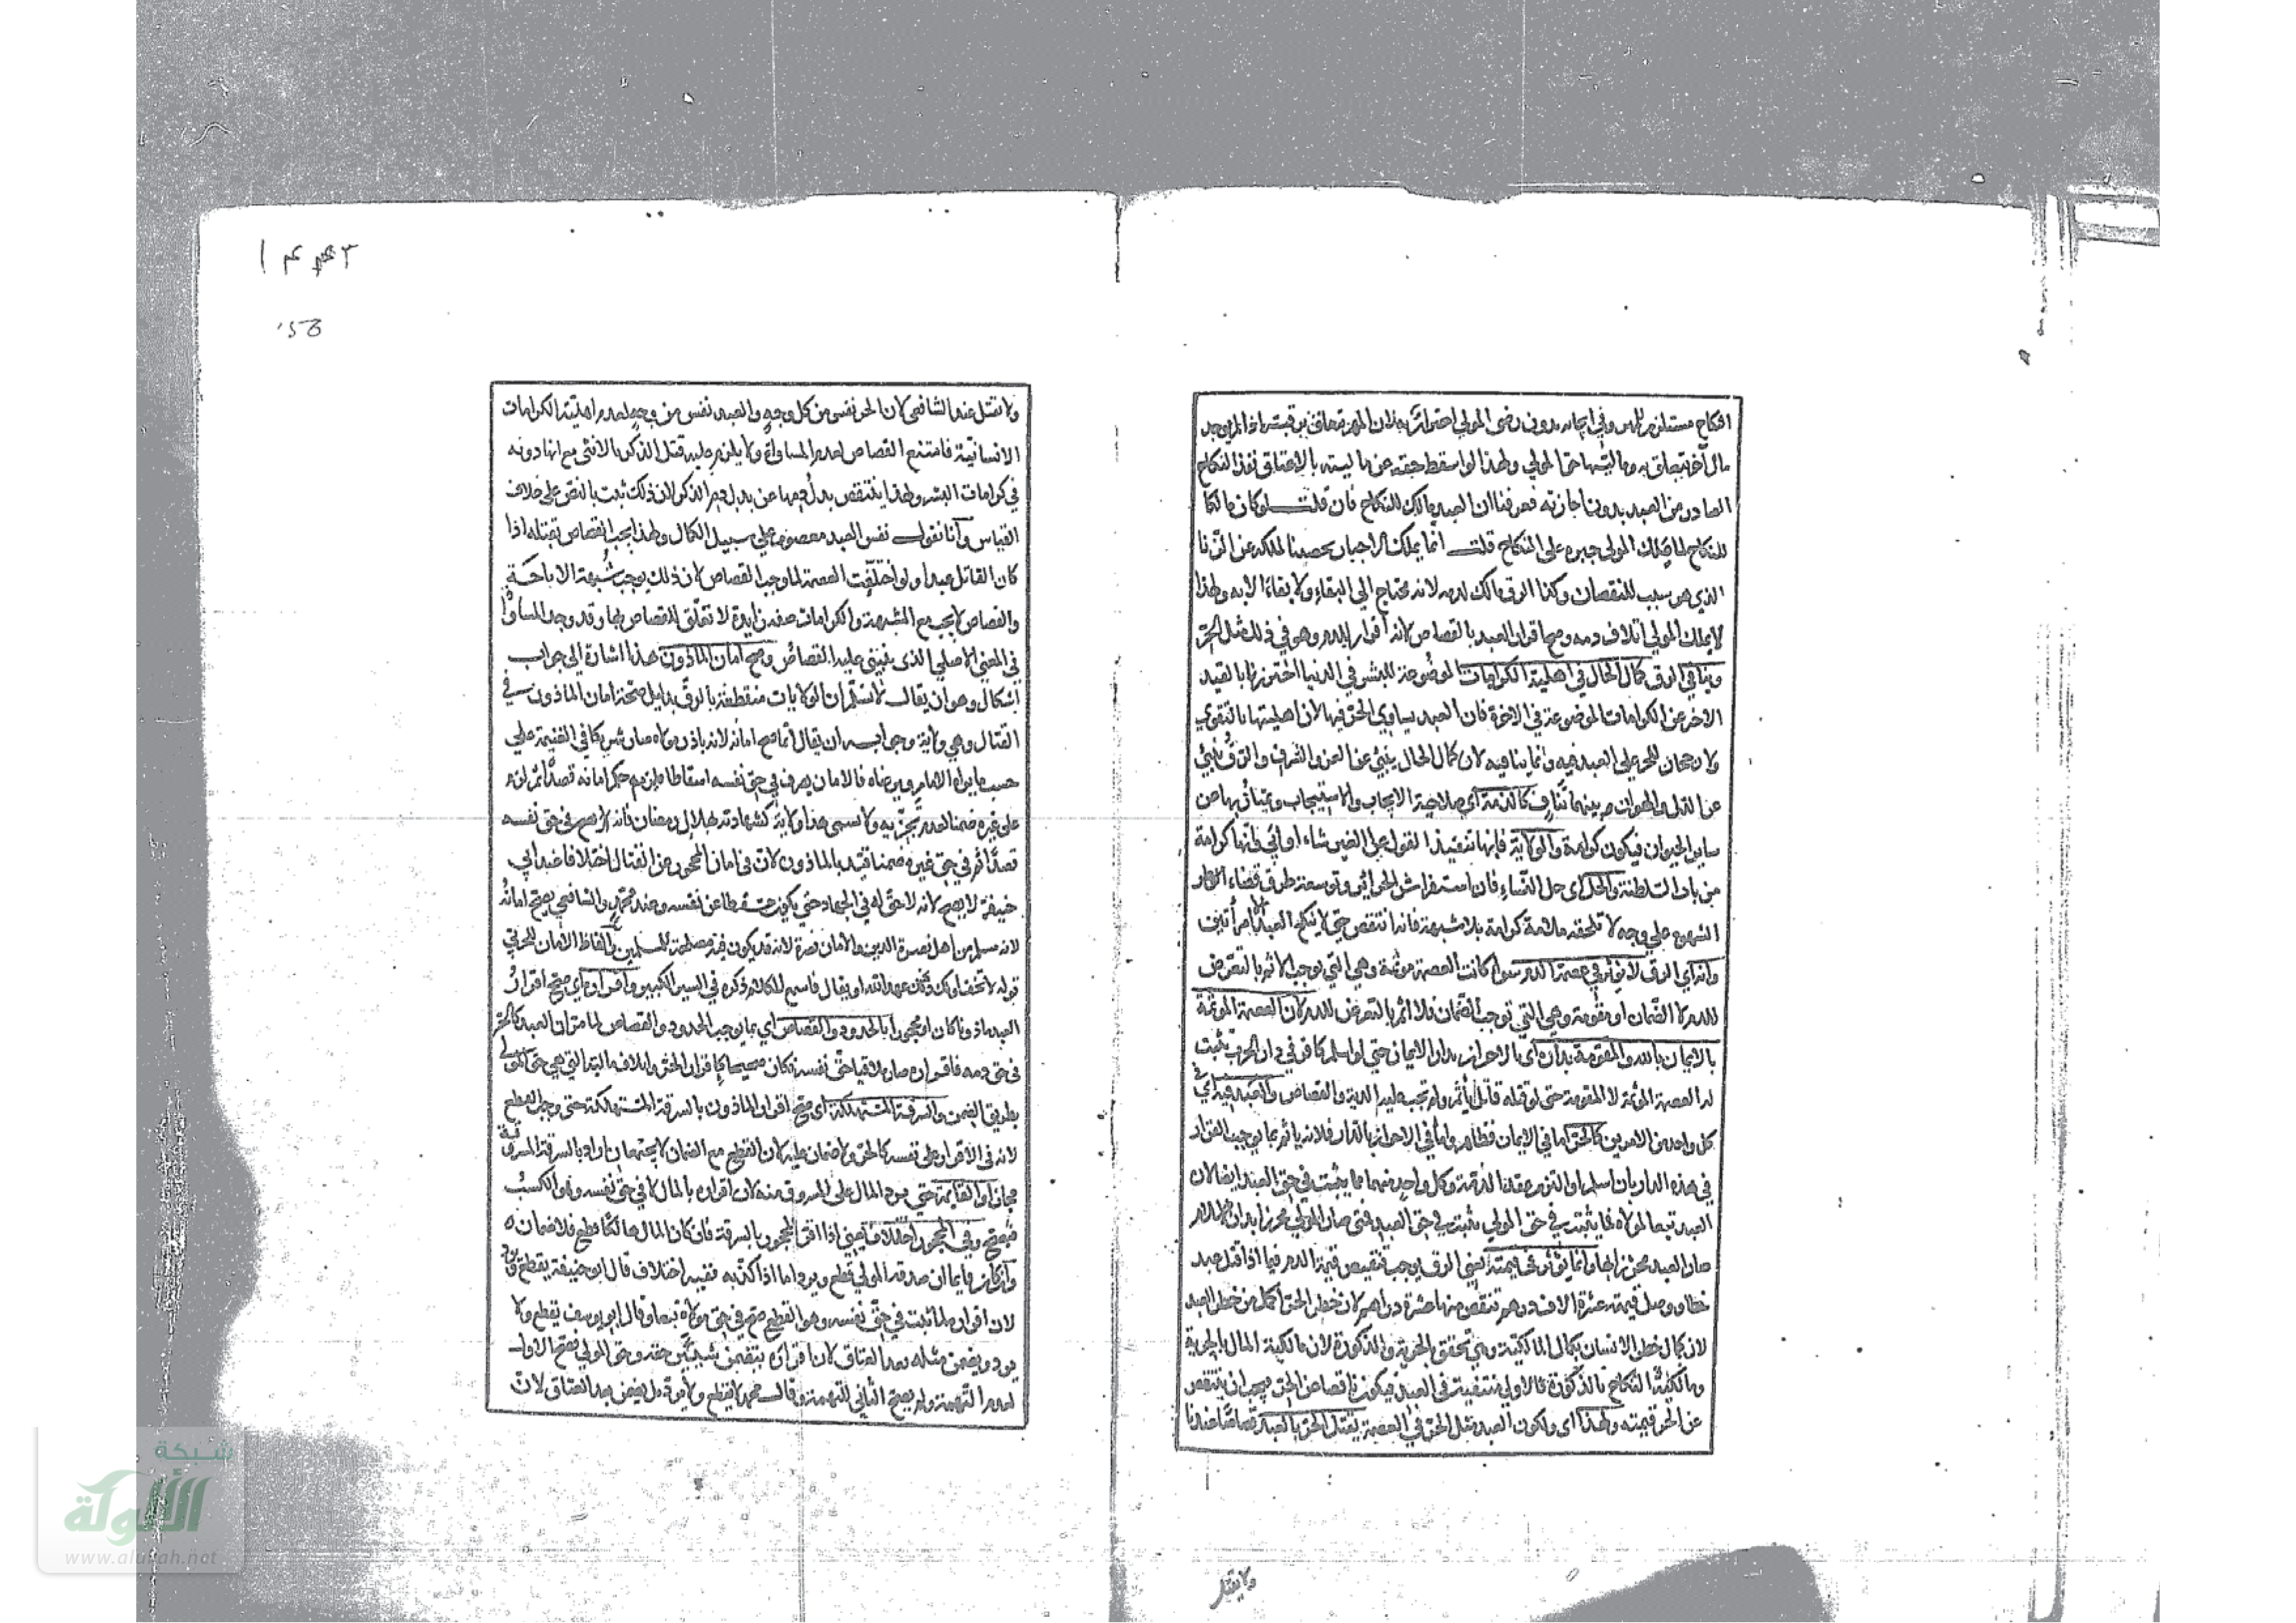 النكاح مستلزم للمهر وفي ايجابه بدون رضى المولي اضرار به لان المهر يتعلق برقبته اذا لم يوجد
مال آخر يتعلق به وماليتها حق المولي ولهذا لو اسقط حقه عن ماليته بالاعتاق نفذ النكاح
الصادر من العبد بدون اجازته فعرفنا ان العبد مالك للنكاح فان قلت لو كان مالكا
للنكاح لما ملك المولى جبره على النكاح قلت انما يملك الاجبار تحصينا لملكه عن الزنا
الذي هو سبب للنقصان وكذا الرق مالك لدمه لانه محتاج الي البقاء ولا بقاء الا به ولهذا
لا يملك المولي اتلاف دمه وصح اقرار العبد بالقصاص لانه اقرار بالدم وهو في ذلك مثل الحر
وينافي الرق كمال الحال في اهلية الكرامات الموضوعة للبشر في الدنيا احترز بهذا القيد
الاخر عن الكرامات الموضوعة في الاخرة فان العبد يساوي الحر فيها لان اهليتها بالتقوي
ولا رجحان للحر علي العبد فيه وانما ينافيه لان كمال الحال ينبئ عن العز والشرف والرق ينبئ
عن الذل والهوان وبينهما تناف كالذمة اي صلاحية الايجاب والاستيجاب ويمتاز بها من
ساير الحيوان فيكون كرامة والولاية فانها تنفيذ القول على الغير شاء او ابي فانها كرامة
من باب السلطنة والحل اي حل النساء فان استفراش الحرائر وتوسعة طرق قضاء اوطار
الشهوة علي وجه لا تلحقه ملامة كرامة بلا شبهة فانه انتقص حتي لا ينكح العبد الا امرأتين
وانه اي الرق لا يؤثر في عصمة الدم سواء كانت العصمة مؤثمة وهي التي توجب الاثم بالتعرض
للدم لا الضمان او مقومة وهي التي توجب الضمان فلا اثم بالتعرض للدم لان العصمة المؤثمة
بالايمان بالله والمقومة بداره اي بالاحراز بدار الايمان حتي لو اسلم كافر في دار الحرب يثبت
له العصمة المؤثمة لا المقومة حتى لو قتله قاتل يأثم ولم تجب عليه الدية والقصاص والعبد فيه اي في
كل واحد من الامرين كالحر اما في الايمان فظاهر واما في الاحراز بالدار فلانه يأثم بما يوجب القرار
في هذه الدار بان اسلم او التزم عقد الذمة وكل واحد منهما مما يثبت في حق العبد ايضا لان
العبد تبعا لمولاه فما يثبت في حق المولي يثبت في حق العبد فمتى صار المولي محرزا بدار الاسلام
صار العبد محرزا بها وانما يؤثر في قيمته يعني الرق يوجب تنقيص قيمة الدم فيما اذا قتل عبد
خطا ووصل قيمته عشرة الاف درهم تنقص منها عشرة دراهم لان خطر الحر اكمل من خطر العبد
لان كمال خطر الانسان بكمال المالكية وهي تتحقق بالحرية والذكورة لان مالكية المال بالحرية
ومالكية النكاح بالذكورة فالاولي منتفية في العبد فيكون ناقصا عن الحر فيجب ان ينتقص
عن الحر قيمته ولهذا اي ولكون العبد مثل الحر في العصمة يقتل الحر بالعبد قصاصا عندنا
ولا يقتل
ولا يقتل عند الشافعي لان الحر نفس من كل وجه والعبد نفس من وجه لعدم اهلية الكرامات
الانسانية فامتنع القصاص لعدم المساواة ولا يلزم عليه قتل الذكر بالانثى مع انها دونه
في كرامات البشر ولهذا ينتقص بدل دمها عن بدل دم الذكر لان ذلك ثبت بالنص على خلاف
القياس وانا نقول نفس العبد معصومة علي سبيل الكمال ولهذا يجب القصاص بقتله اذا
كان القاتل عبدا ولو اختلفت العصمة لما وجب القصاص لان ذلك يوجب شبهة الاباحة
والقصاص لا يجب مع الشبهة والكرامات صفة زايدة لا تعلق للقصاص بها وقد وجد المساواة
في المعني الاصلي الذي يبتني عليه القصاص وصح امان الماذون هذا اشارة الي جواب
اشكال وهو ان يقال لا نسلم ان الولايات منقطعة بالرق بدليل صحة امان الماذون في
القتال وهي ولاية وجوابه ان يقال انما صح امانه لانه باذن مولاه صار شريكا في الغنيمة علي
حسب ما يراه الامام ويرضاه فالامان يصرف في حق نفسه اسقاطا فلزمه حكم امانه قصدا ثم لزم
على غيره ضمنا لعدم تجزيه ولا يسمي هذا ولاية كشهادته بهلال رمضان فانه لازم في حق نفسه
قصدا ثم في حق غيره ضمنا قيد بالماذون لان في امان المحجور عن القتال اختلافا عند ابي
حنيفة لا يصح لانه لا حق له في الجهاد حتي يكون مسقطا عن نفسه وعند محمد والشافعي يصح امانه
لانه مسلم من اهل نصرة الدين والامان نصرة لانه قد يكون فيه مصلحة للمسلمين والفاظ الامان للحربي
قوله لا تخف او لك عهد الله او يقال فاسمع الكلام ذكره في السير الكبير واقراره اي صح اقرار
العبد ماذونا كان او محجورا بالحدود والقصاص اي بما يوجب الحدود والقصاص لما مر ان العبد كالحر
في حق دمه فاقراره صار ملاقيا حق نفسه فكان صحيحا كاقرار الحر واتلاف ماليته التي هي حق المولي
بطريق الضمن والسرقة المستهلكة اي صح اقرار الماذون بالسرقة المستهلكة حتى وجب القطع
لانه في الاقرار على نفسه كالحر ولا ضمان عليه لان القطع مع الضمان لا يجتمعان اراد بالسرقة المسروقة
مجازا والقايمة حتي يرد المال على المسروق منه لان اقراره بالمال لاقي حق نفسه وهو الكسب
فيصح وفي المحجور اختلاف يعني اذا اقر المحجور بالسرقة فان كان المال هالكا قطع فلا ضمان
وان كان قايما ان صدقه المولي قطع ويرد اما اذا كذبه ففيه اختلاف قال ابو حنيفة يقطع ويرد
لان اقراره لما ثبت في حق نفسه وهو القطع صح في حق مولاه تبعا وقال ابو يوسف يقطع ولا
يرد ويضمن مثله بعد العتاق لان اقراره يتضمن شيئين حقه وحق المولي فصح الاول
لعدم التهمة ولم يصح الثاني للتهمة وقال محمد لا يقطع ولا يرد بل يضمن بعد العتاق لان
شبكة
الألوكة
www.alukah.net